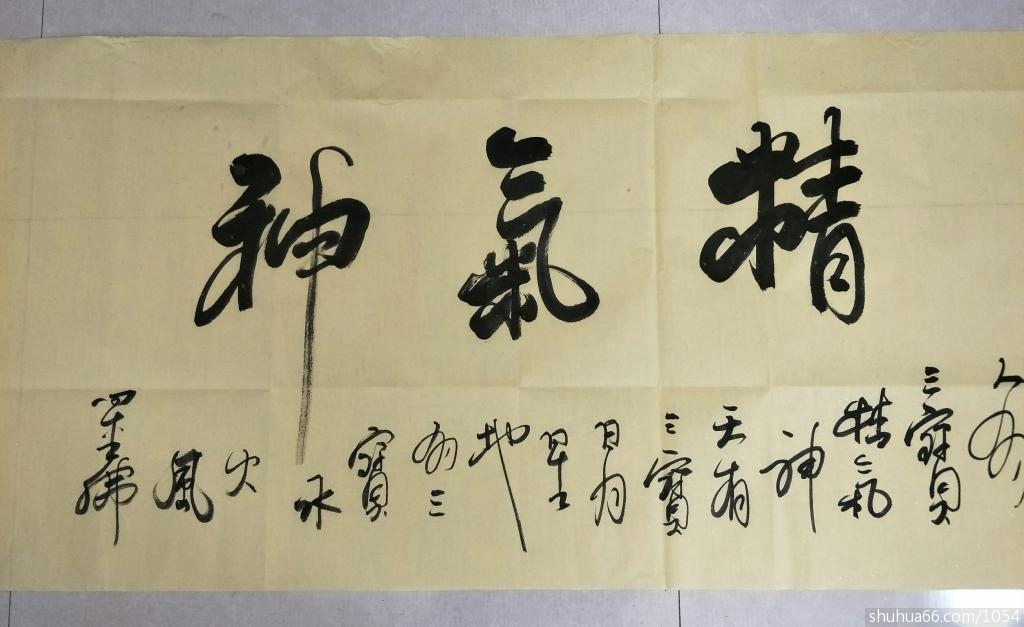 精氣神
人有
三寶
精氣
神
天有
三寶
日月
星
地
有三
寶
水
火
風
墨佛
shuhua66.com/1054